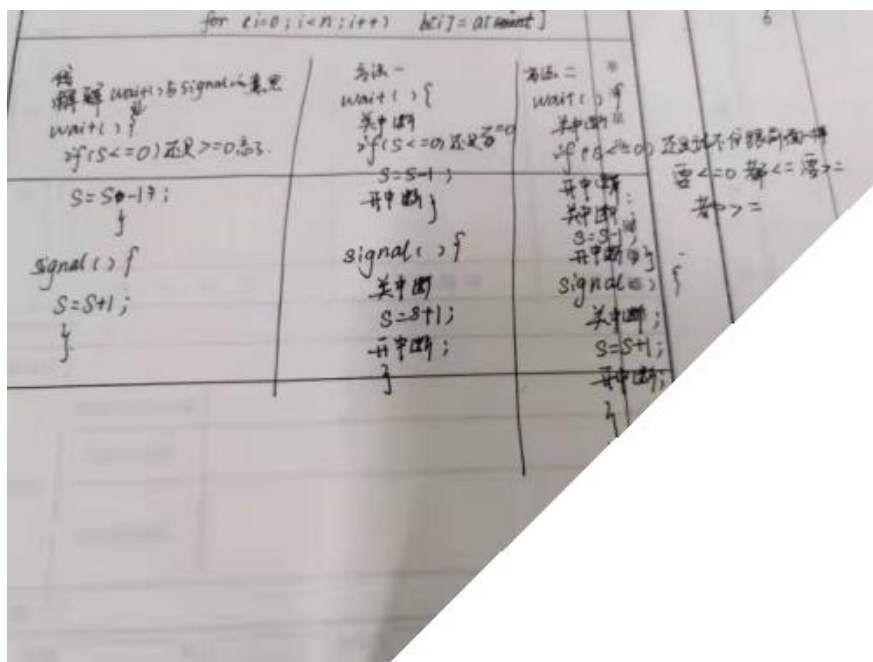 for (i=0; i<n; i++) b[i]=a[
6
解释wait()与signal的意思
wait() {
if(S<=0)还是>=0忘了.
S=S-1;
}
signal() {
S=S+1;
}
方法一
wait() {
关中断
if(S<=0)还是>=0
S=S-1;
开中断}
signal() {
关中断
S=S+1;
开中断;
}
方法二
wait() {
关中断
if(S<=0)还是
要<=0都<=要>=
都>=
开中断;
关中断;
S=S-1;
开中断;}
signal() {
关中断;
S=S+1;
开中断;
}